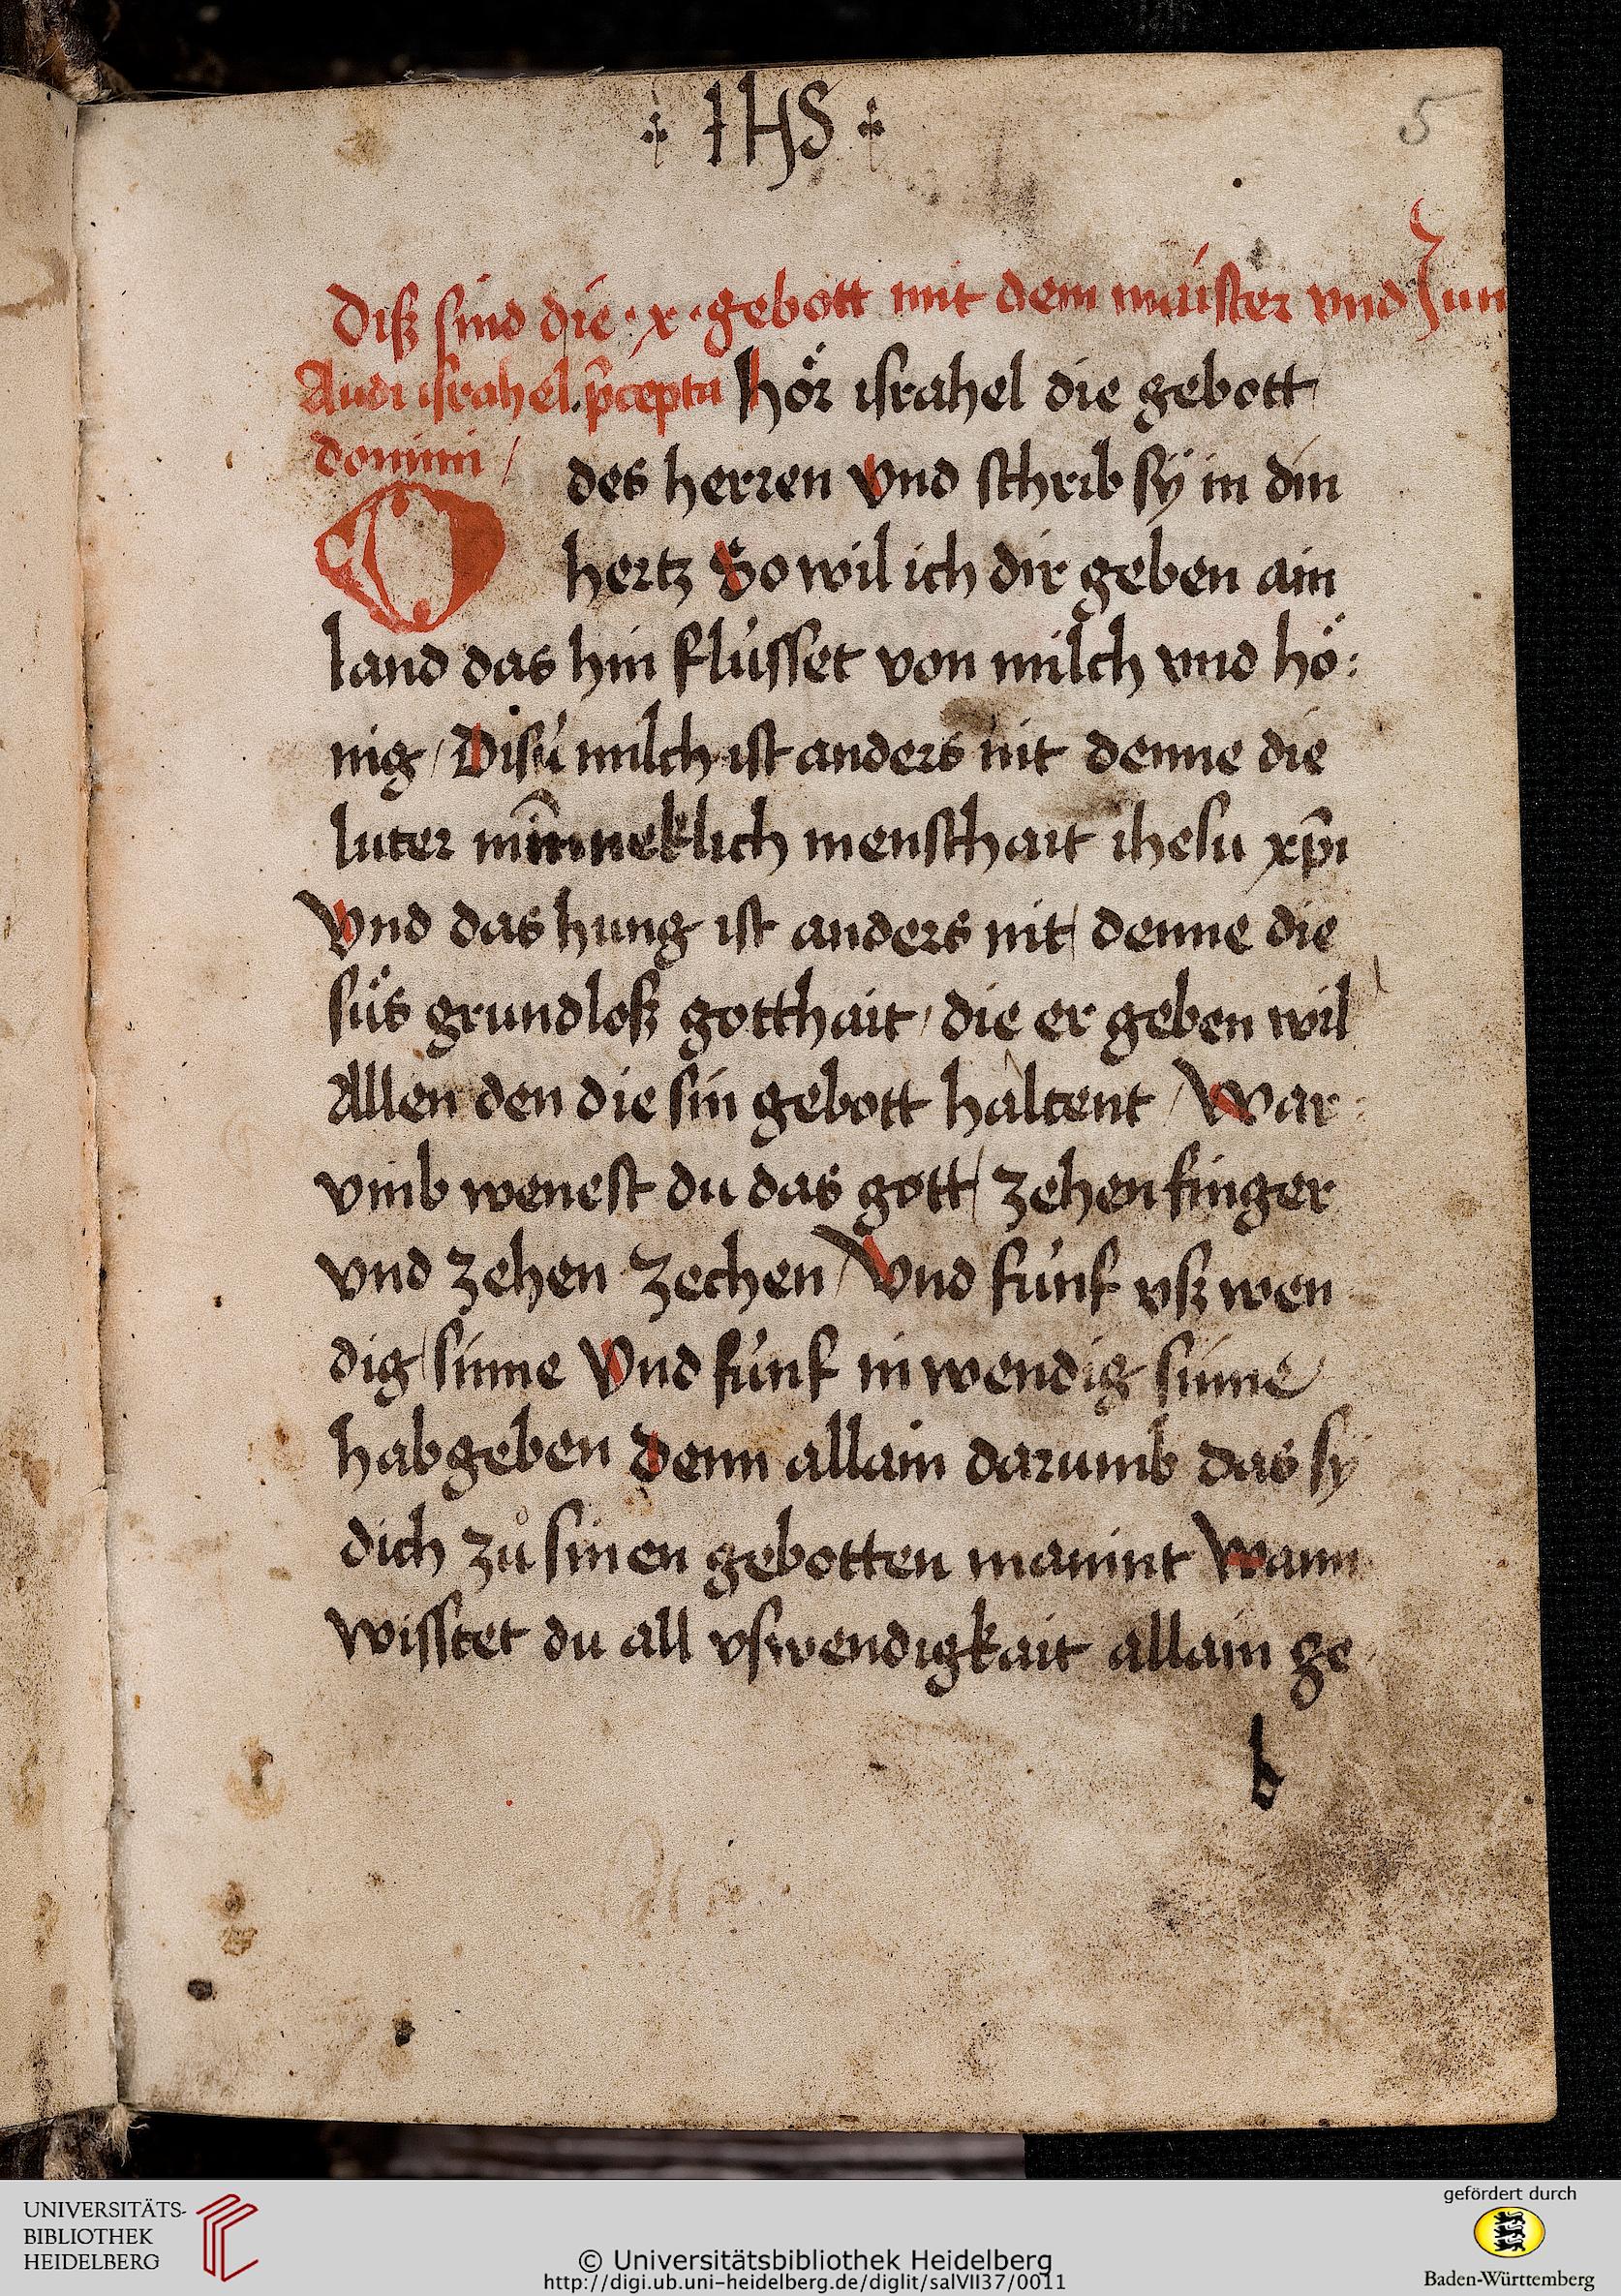 IHS
5
Diß sind die · x · gebott mit dem maister vnd Jun
Audi israhel p̄cepta hör israhel die gebott
domini /
O
des herren vnd schrib sÿ in din
hertz So wil ich dir geben ain
land das hin flússet von milch vnd hö:
nig / Disú milch ist anders nit denne die
luter mīnneklich menschait ihesu xp̄i
Vnd das hung ist anders nit / denne die
süs grundloß gotthait / die er geben wil
Allen den die sin gebott haltent / War
vmb wenest du das gott / zehen finger
vnd zehen zechen / Vnd fúnf vßwen
dig / sinne Vnd fúnf inwendig sinne
hab geben denn allain darumb das sy
dich zů sinen gebotten manint wann
wisstet du all vswendigkait allain ge
b
UNIVERSITÄTS-
BIBLIOTHEK
HEIDELBERG
© Universitätsbibliothek Heidelberg
http://digi.ub.uni-heidelberg.de/diglit/salVII37/0011
gefördert durch
Baden-Württemberg